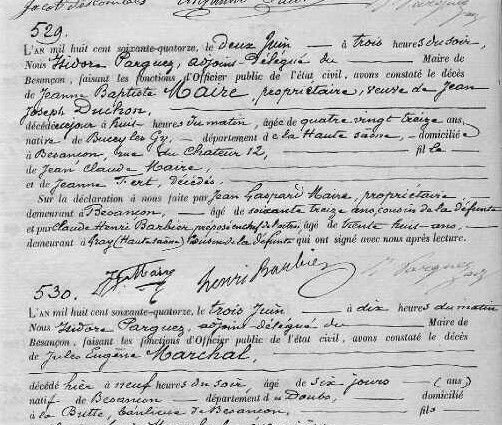 529.
L'AN mil huit cent soixante-quatorze, le deux Juin — à trois heures du soir,
Nous Isidore Parguez, adjoint délégué du Maire de
Besançon, faisant les fonctions d'Officier public de l'état civil, avons constaté le décès
de Jeanne Baptiste Maire, propriétaire, veuve de Jean
Joseph Duchon,
décédée ce jour à huit heures du matin, âgée de quatre vingt treize ans,
native de Bucey les Gy, département de la Haute Saône, domiciliée
à Besançon, rue du Chateur 12, fille
de Jean Claude Maire,
et de Jeanne décédés.
Sur la déclaration à nous faite par Jean Gaspard Maire, propriétaire
demeurant à Besançon, âgé de soixante treize ans, cousin de la défunte
et par Claude Henri Barbier préposé en chef de l'octroi, âgé de trente huit ans,
demeurant à Gray (Haute Saône) de la défunte qui ont signé avec nous après lecture.
JG Maire Henri Barbier Parguez
530.
L'AN mil huit cent soixante-quatorze, le trois Juin — à dix heures du matin
Nous Isidore Parguez, adjoint délégué du Maire de
Besançon, faisant les fonctions d'Officier public de l'état civil, avons constaté le décès
de Jules Eugène Marchal,
décédé hier à neuf heures du soir, âgé de six jours (ans)
natif de Besançon département d u Doubs, domicilié
à la Butte, banlieue de Besançon, fils